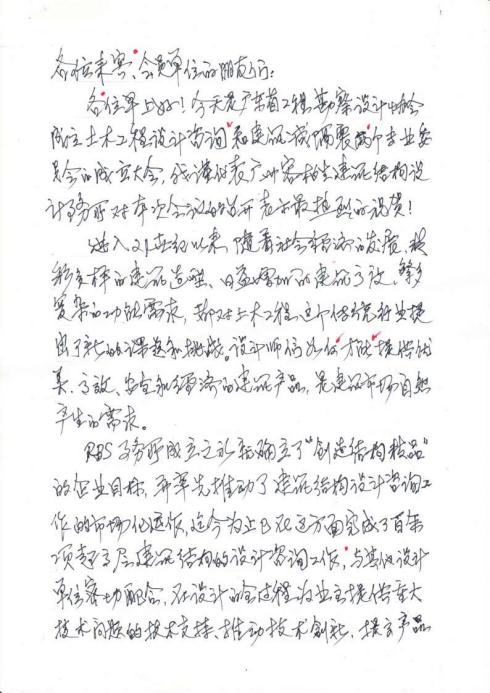 各位来宾、会员单位的朋友们:
各位早上好!今天是广东省工程勘察设计协会
成立土木工程设计咨询和建筑减隔震两个专业委
员会的成立大会,我谨代表广州容柏生建筑结构设
计事务所对本次会议的召开表示最热烈的祝贺!
进入21世纪以来,随着社会经济的发展,多
彩多样的建筑造型、日益增加的建筑高度、繁多
复杂的功能需求,都对土木工程这个传统行业提
出了新的课题和挑战。设计师们如何才能提供优
美、高效、安全和经济的建筑产品,是建筑市场自然
产生的需求。
RBS事务所成立之初就确立了“创造结构精品”
的企业目标,并率先推动了建筑结构设计咨询工
作的市场化运作,迄今为止已在这方面完成了百余
项超高层建筑结构的设计咨询工作,与其他设计
单位密切配合,在设计的全过程为业主提供重大
技术问题的技术支持、推动技术创新、提高产品